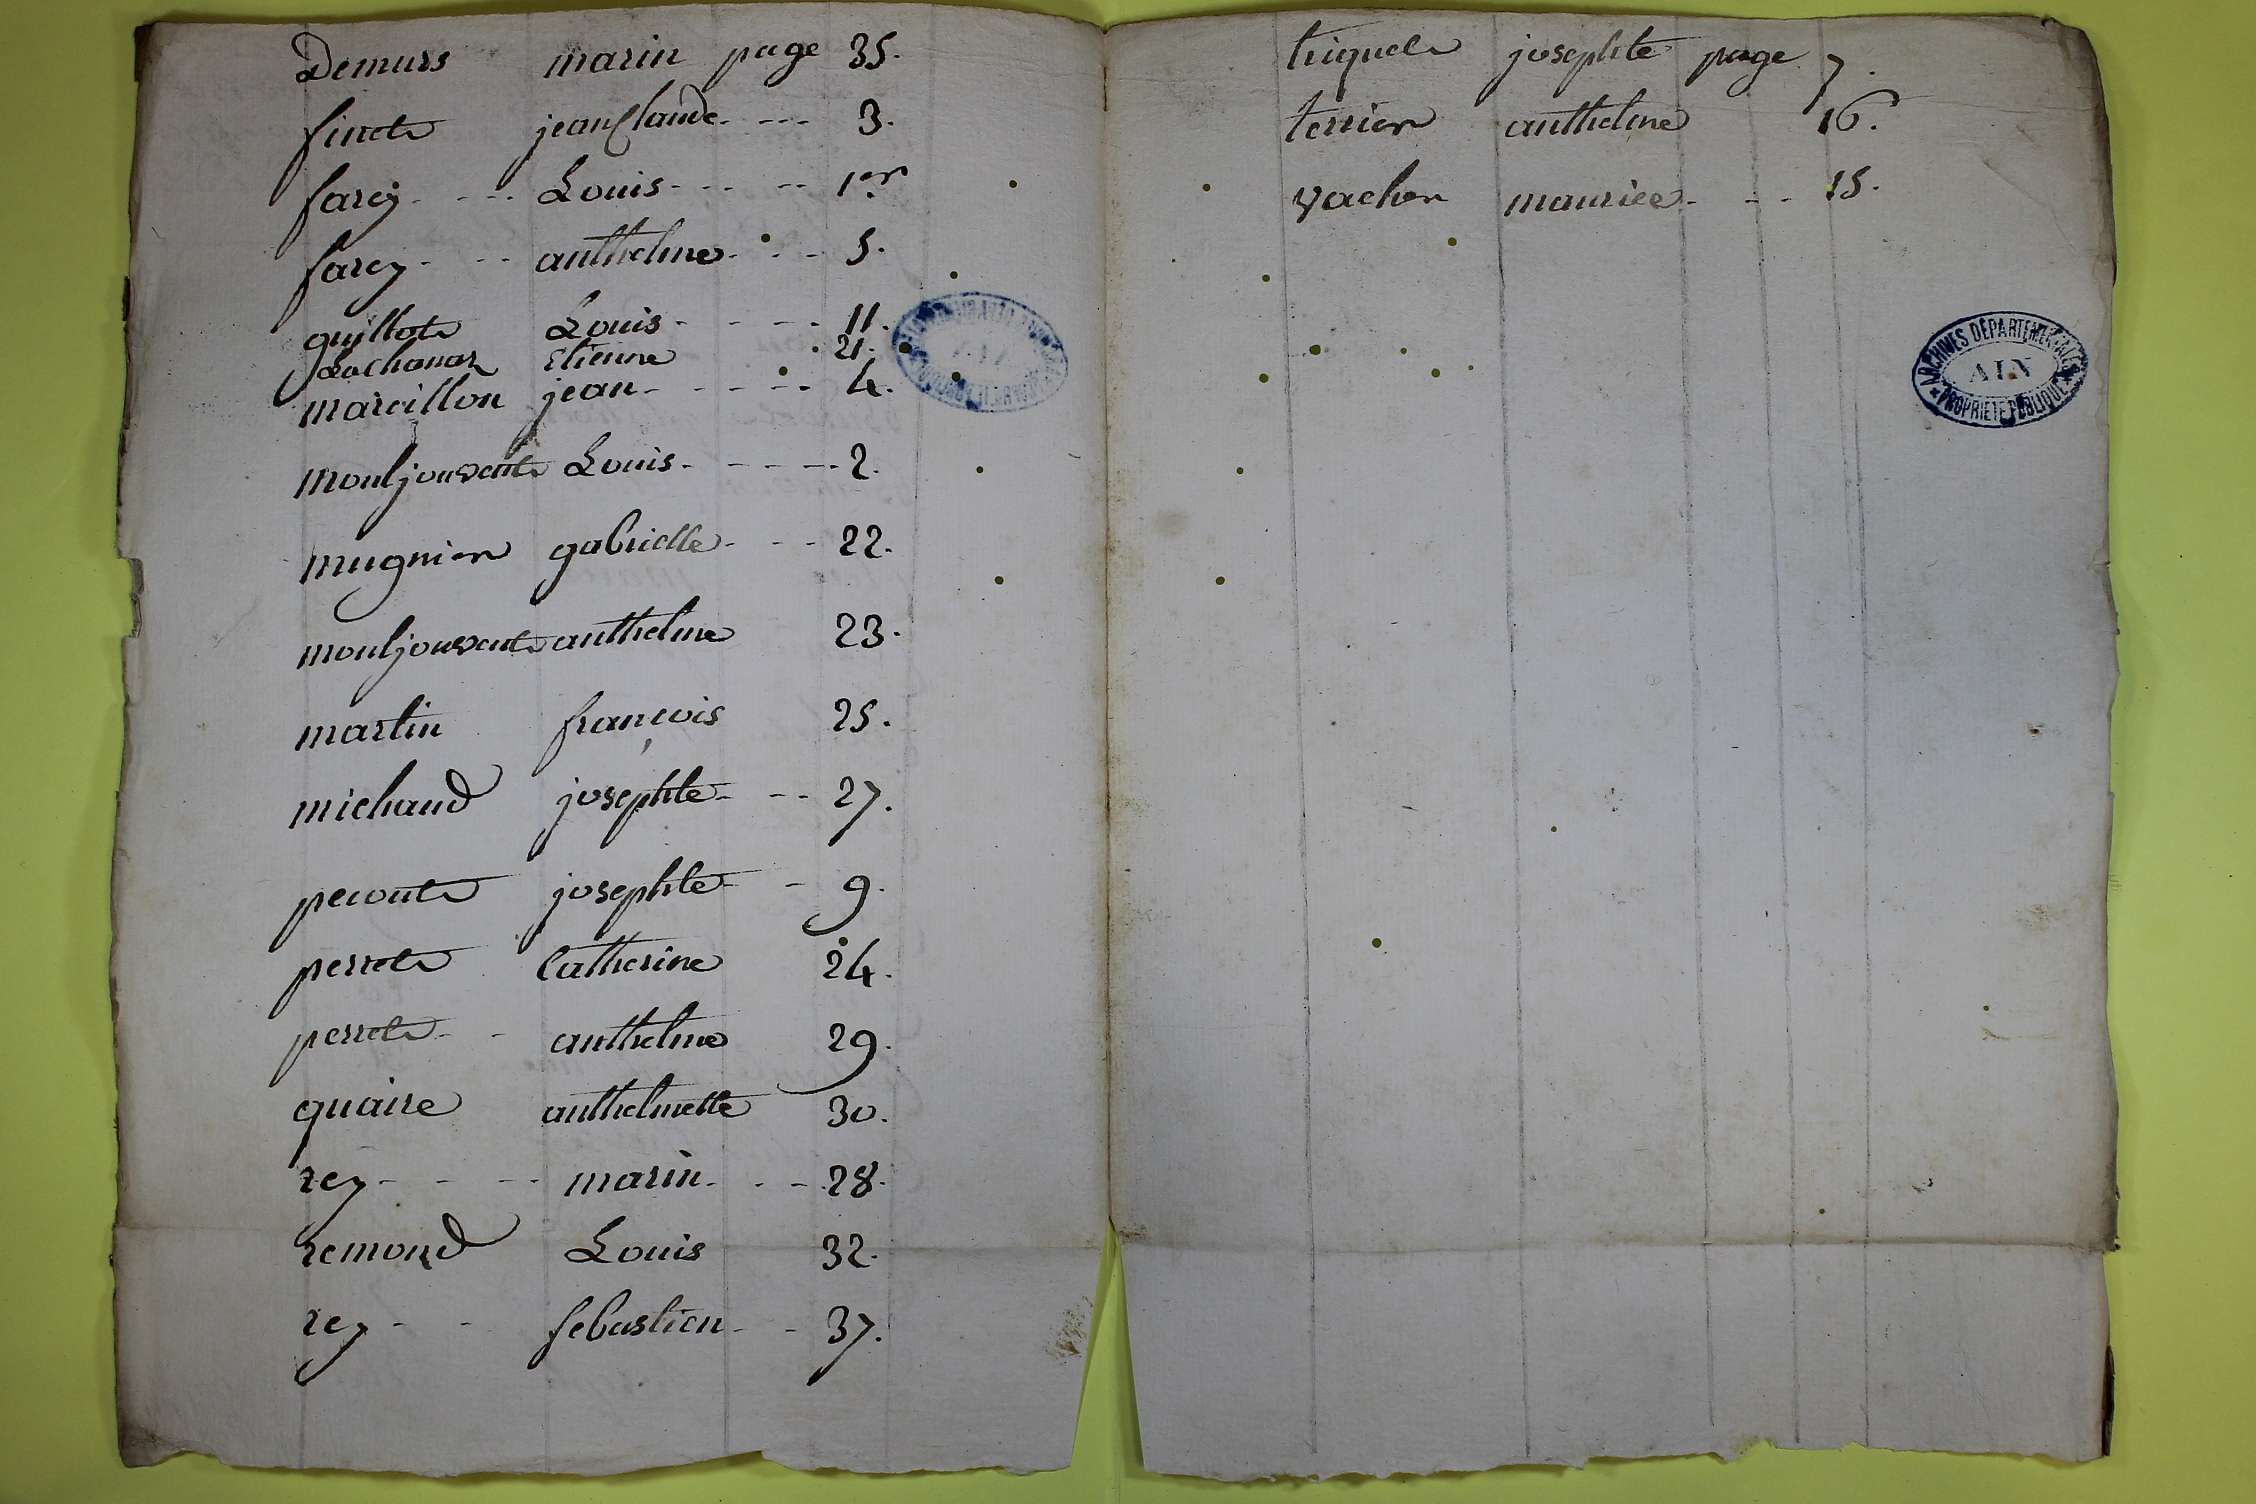 Demurs marin page 35.
finet jean Claude - - - 3.
farcy - - - Louis - - - - - 1er
farcy - - - anthelme - - - 5.
guillot Louis - - - - - 11.
Etienne 21.
marcillon jean - - - - - 4.
montjouvent Louis - - - - - 2.
mugnier gabrielle - - - 22.
montjouvent anthelme 23.
martin françois 25.
michaud josephte - - - 27.
pecout josephte - - 9.
perret Catherine 24.
perret - - anthelme 29.
quaire anthelmette 30.
rey - - - - marin - - - 28.
remond Louis 32.
rey - - sebastien - - 37.
triquet josephte page 7.
terrier anthelme 16.
vacher maurice - - - 15.
ARCHIVES DÉPARTEMENTALES
AIN
PROPRIÉTÉ PUBLIQUE